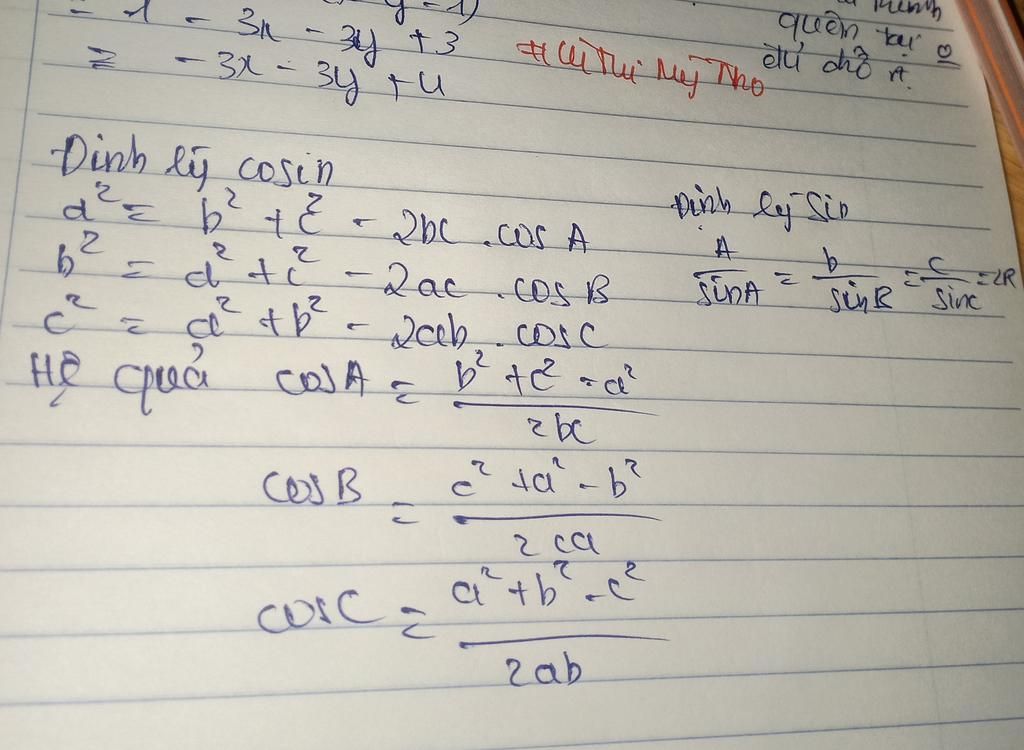 = 1 - 3x - 3y + 3
= - 3x - 3y + 4
quên tại
đủ chỗ A.
Định lý cosin
a² = b² + c² - 2bc . cos A
b² = a² + c² - 2ac . cos B
c² = a² + b² - 2ab . cos C
Định lý sin
A/sinA = b/sinB = c/sinc = 2R
Hệ quả cosA = (b² + c² - a²)/2bc
cosB = (c² + a² - b²)/2ca
cosC = (a² + b² - c²)/2ab